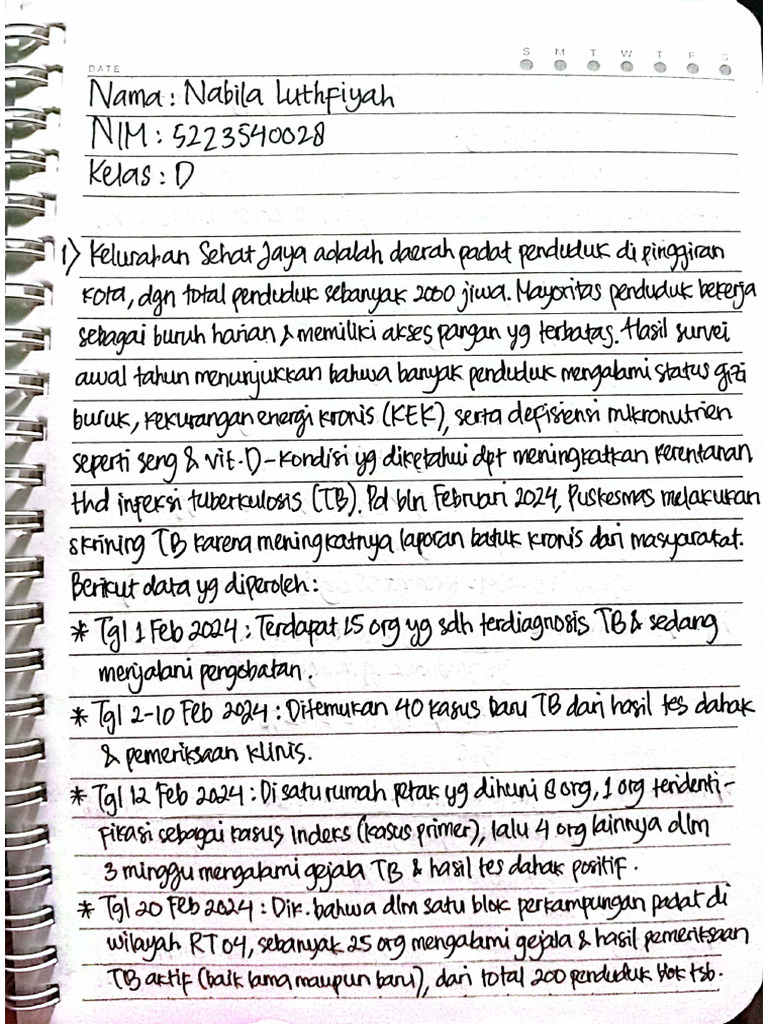 S M T W T F S
DATE
Nama : Nabila Luthfiyah
NIM : 5223540028
Kelas : D
1) Kelurahan Sehat Jaya adalah daerah padat penduduk di pinggiran
kota, dgn total penduduk sebanyak 2000 jiwa. Mayoritas penduduk bekerja
sebagai buruh harian & memiliki akses pangan yg terbatas. Hasil survei
awal tahun menunjukkan bahwa banyak penduduk mengalami status gizi
buruk, kekurangan energi kronis (KEK), serta defisiensi mikronutrien
seperti seng & vit. D - kondisi yg diketahui dpt meningkatkan kerentanan
thd infeksi tuberkulosis (TB). Pd bln Februari 2024, Puskesmas melakukan
skrining TB karena meningkatnya laporan batuk kronis dari masyarakat.
Berikut data yg diperoleh :
* Tgl 1 Feb 2024 : Terdapat 15 org yg sdh terdiagnosis TB & sedang
menjalani pengobatan.
* Tgl 2-10 Feb 2024 : Ditemukan 40 kasus baru TB dari hasil tes dahak
& pemeriksaan klinis.
* Tgl 12 Feb 2024 : Di satu rumah petak yg dihuni 8 org, 1 org teridenti-
fikasi sebagai kasus indeks (kasus primer), lalu 4 org lainnya dlm
3 minggu mengalami gejala TB & hasil tes dahak positif.
* Tgl 20 Feb 2024 : Dik. bahwa dlm satu blok perkampungan padat di
wilayah RT 04, sebanyak 25 org mengalami gejala & hasil pemeriksaan
TB aktif (baik lama maupun baru), dari total 200 penduduk blok tsb.